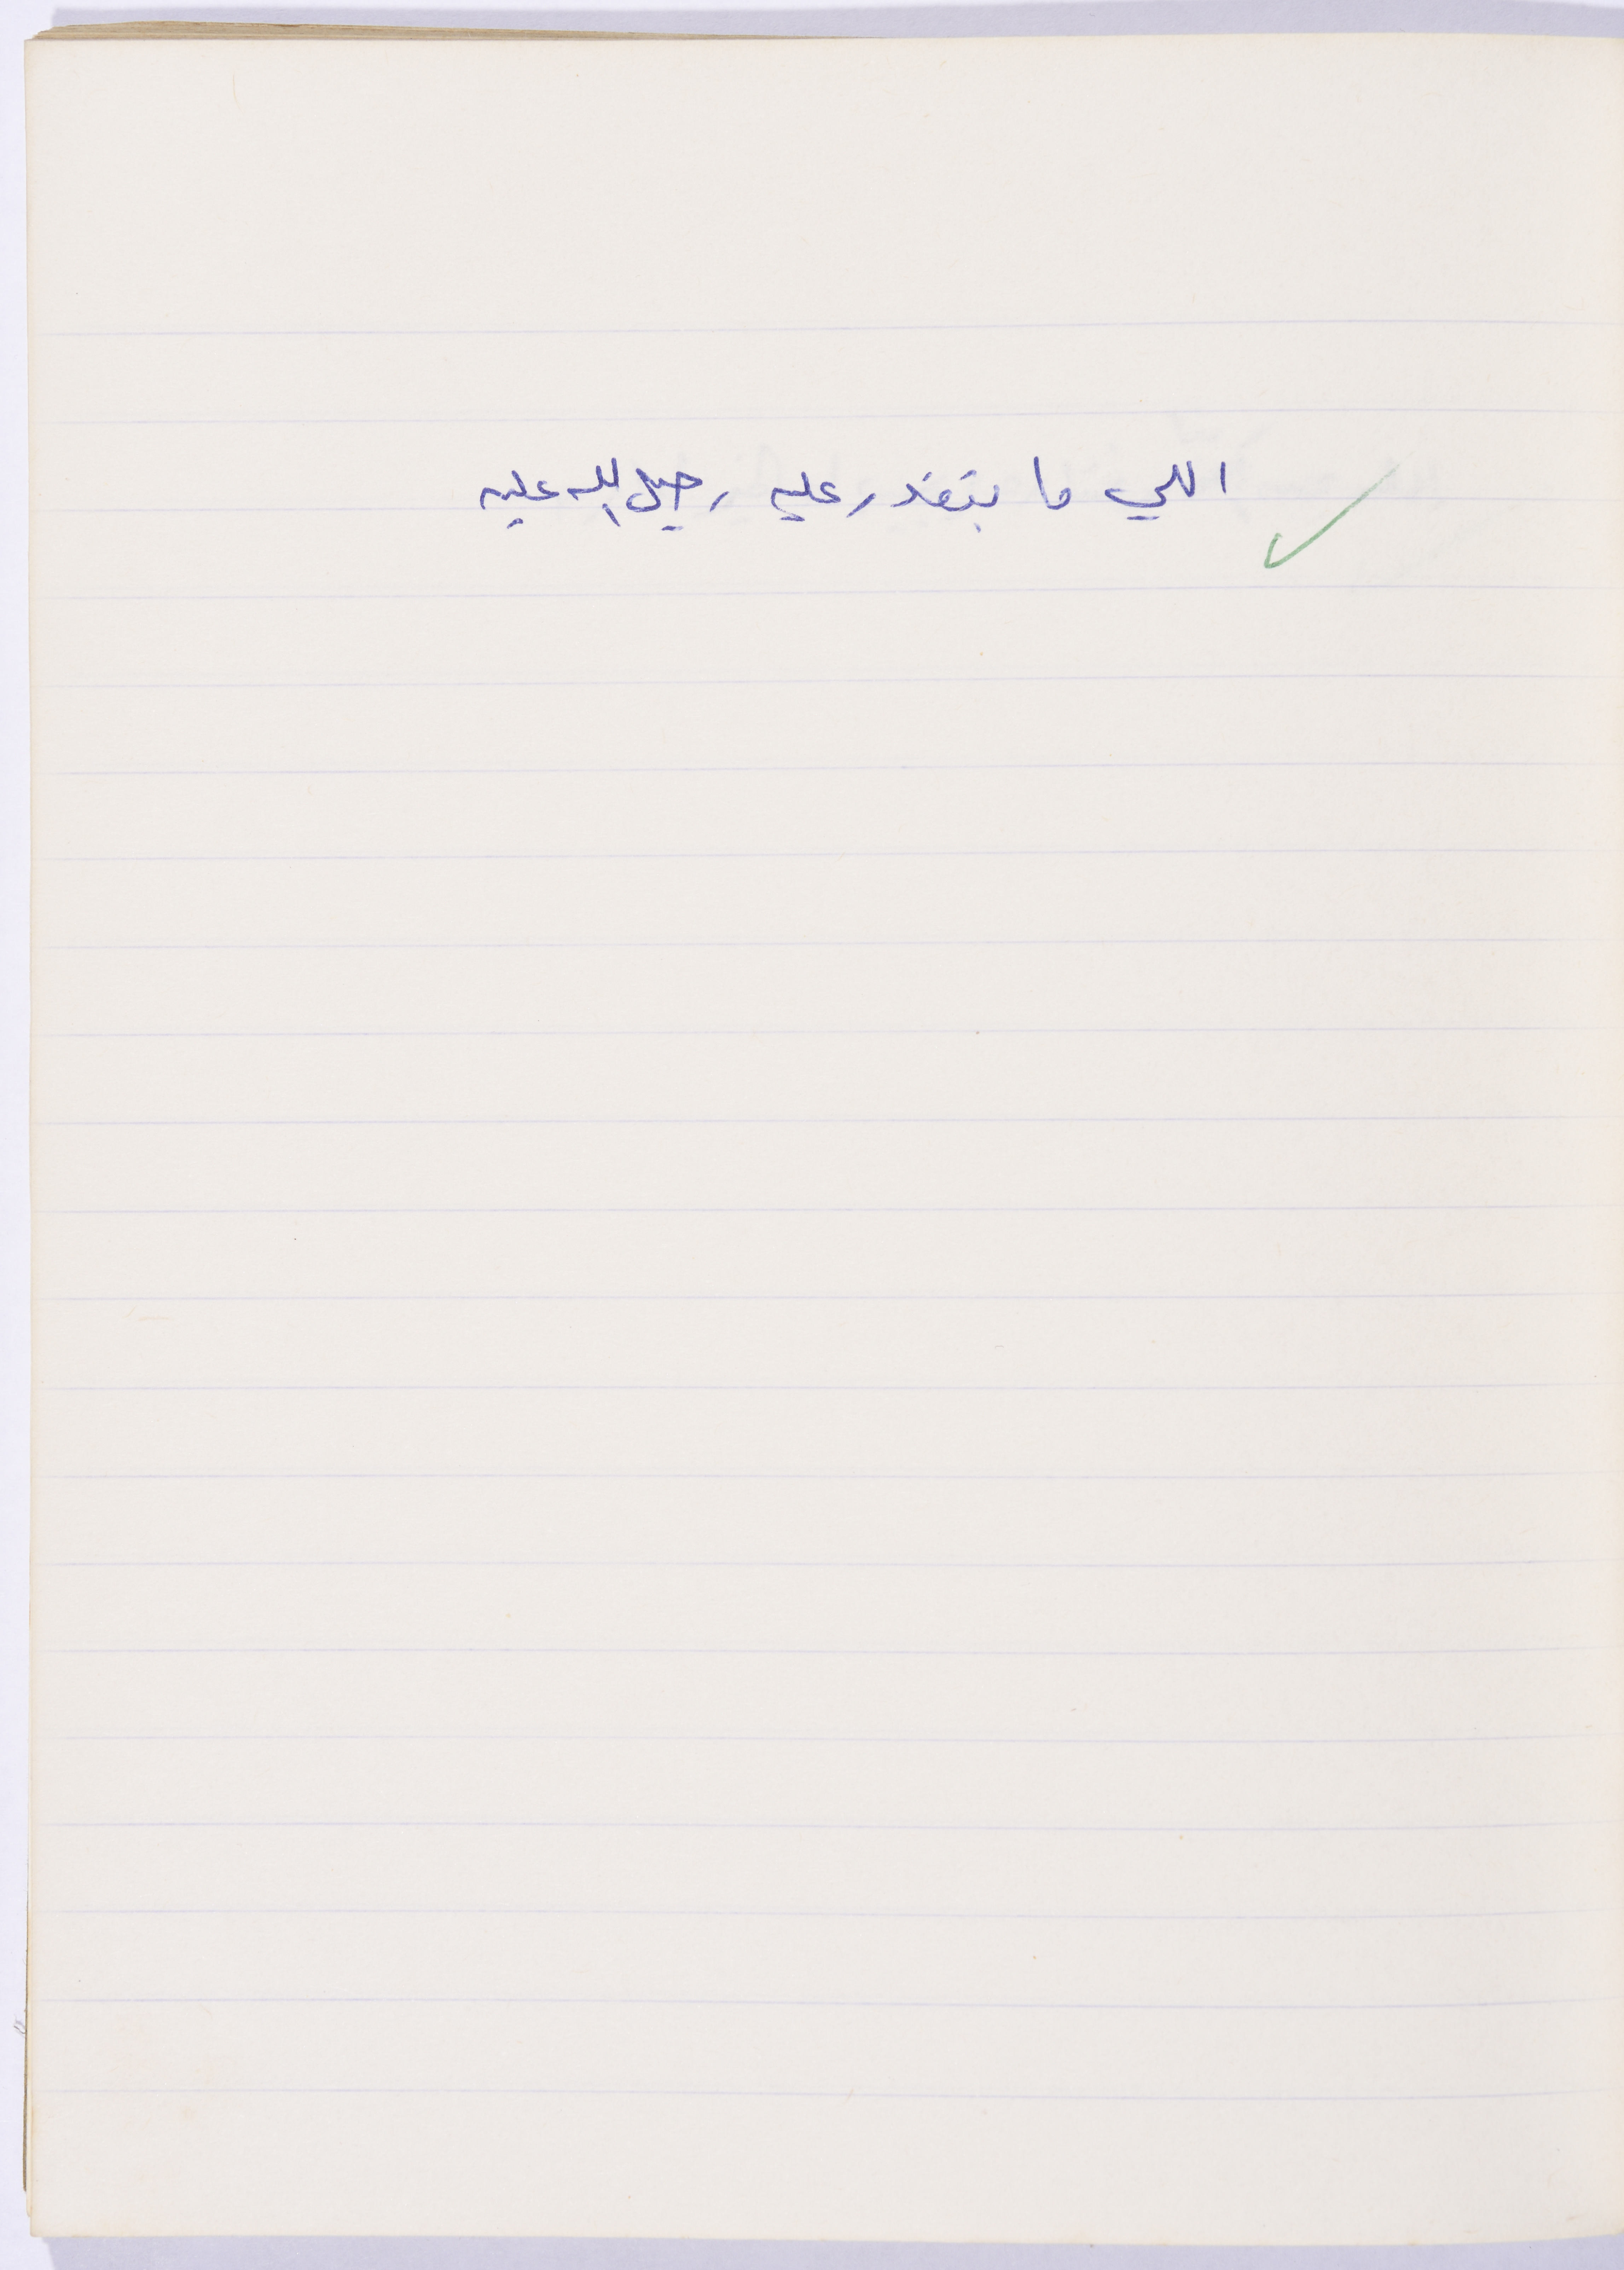 اللي ما بتقدر عليه رحيل الله عليه